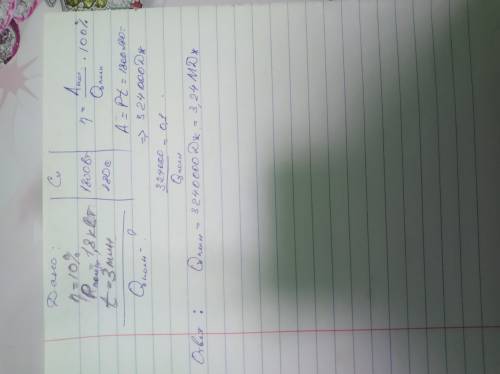 Дано:
η = 10%
Pполезн = 1,8 кВт
t = 3 мин
Qполн - ?
Си
1800 Вт
180 с
η = Aпол / Qполн · 100%
A = Pt = 1800·180 =
=> 324000 Дж
324000 / Qполн = 0,1
Ответ: Qполн = 3240000 Дж = 3,24 МДж